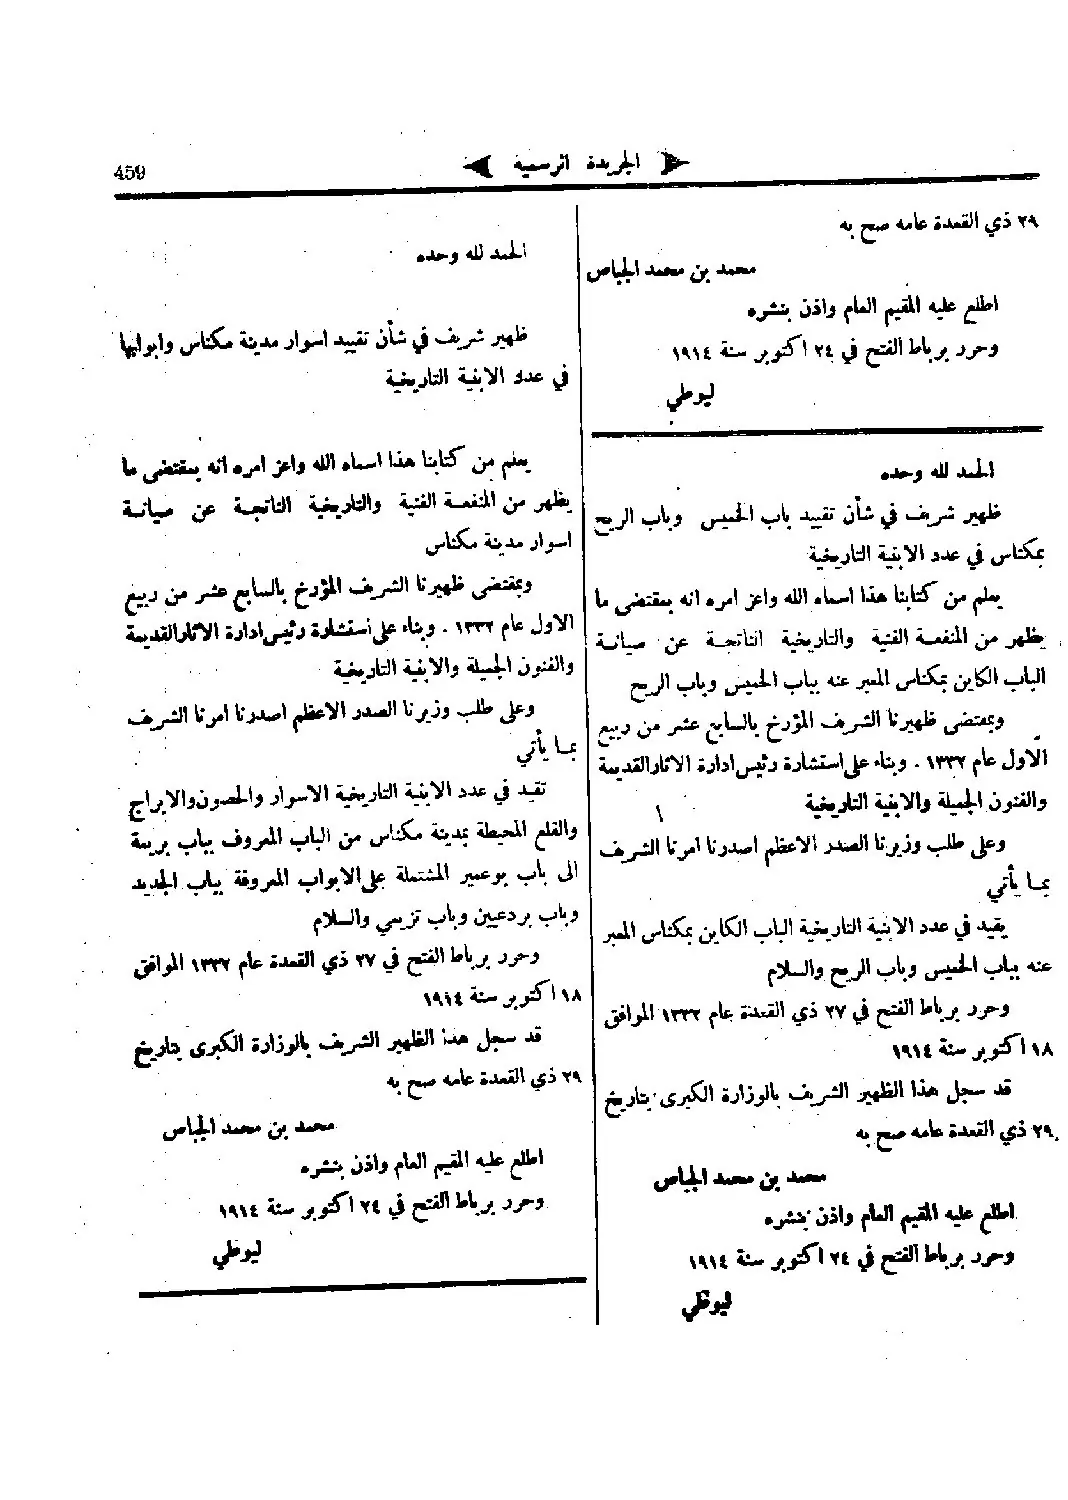 الجريدة الرسمية
459
٢٩ ذي القعدة عامه صح به
محمد بن محمد الجباص
اطلع عليه المقيم العام واذن بنشره
وحرر برباط الفتح في ٢٤ اكتوبر سنة ١٩١٤
ليوطي
الحمد لله وحده
ظهير شريف في شأن تقييد باب الخميس وباب الريح
بمكناس في عدد الابنية التاريخية
يعلم من كتابنا هذا اسماه الله واعز امره انه بمقتضى ما
يظهر من المنفعة الفنية والتاريخية الناتجة عن صيانة
الباب الكاين بمكناس المعبر عنه بباب الخميس وباب الريح
وبمقتضى ظهيرنا الشريف المؤرخ بالسابع عشر من ربيع
الاول عام ١٣٣٢ . وبناء على استشارة رئيس ادارة الاثار القديمة
والفنون الجميلة والابنية التاريخية
وعلى طلب وزيرنا الصدر الاعظم اصدرنا امرنا الشريف
بما يأتي
يقيد في عدد الابنية التاريخية الباب الكاين بمكناس المعبر
عنه بباب الخميس وباب الريح والسلام
وحرر برباط الفتح في ٢٧ ذي القعدة عام ١٣٣٢ الموافق
١٨ اكتوبر سنة ١٩١٤
قد سجل هذا الظهير الشريف بالوزارة الكبرى بتاريخ
٢٩ ذي القعدة عامه صح به
محمد بن محمد الجباص
اطلع عليه المقيم العام واذن بنشره
وحرر برباط الفتح في ٢٤ اكتوبر سنة ١٩١٤
ليوطي
الحمد لله وحده
ظهير شريف في شأن تقييد اسوار مدينة مكناس وابوابها
في عدد الابنية التاريخية
يعلم من كتابنا هذا اسماه الله واعز امره انه بمقتضى ما
يظهر من المنفعة الفنية والتاريخية الناتجة عن صيانة
اسوار مدينة مكناس
وبمقتضى ظهيرنا الشريف المؤرخ بالسابع عشر من ربيع
الاول عام ١٣٣٢ . وبناء على استشارة رئيس ادارة الاثار القديمة
والفنون الجميلة والابنية التاريخية
وعلى طلب وزيرنا الصدر الاعظم اصدرنا امرنا الشريف
بما يأتي
تقيد في عدد الابنية التاريخية الاسوار والحصون والابراج
والقلع المحيطة بمدينة مكناس من الباب المعروف بباب بريمة
الى باب بوعمير المشتملة على الابواب المعروفة بباب الجديد
وباب بردعيين وباب تزيمي والسلام
وحرر برباط الفتح في ٢٧ ذي القعدة عام ١٣٣٢ الموافق
١٨ اكتوبر سنة ١٩١٤
قد سجل هذا الظهير الشريف بالوزارة الكبرى بتاريخ
٢٩ ذي القعدة عامه صح به
محمد بن محمد الجباص
اطلع عليه المقيم العام واذن بنشره
وحرر برباط الفتح في ٢٤ اكتوبر سنة ١٩١٤
ليوطي